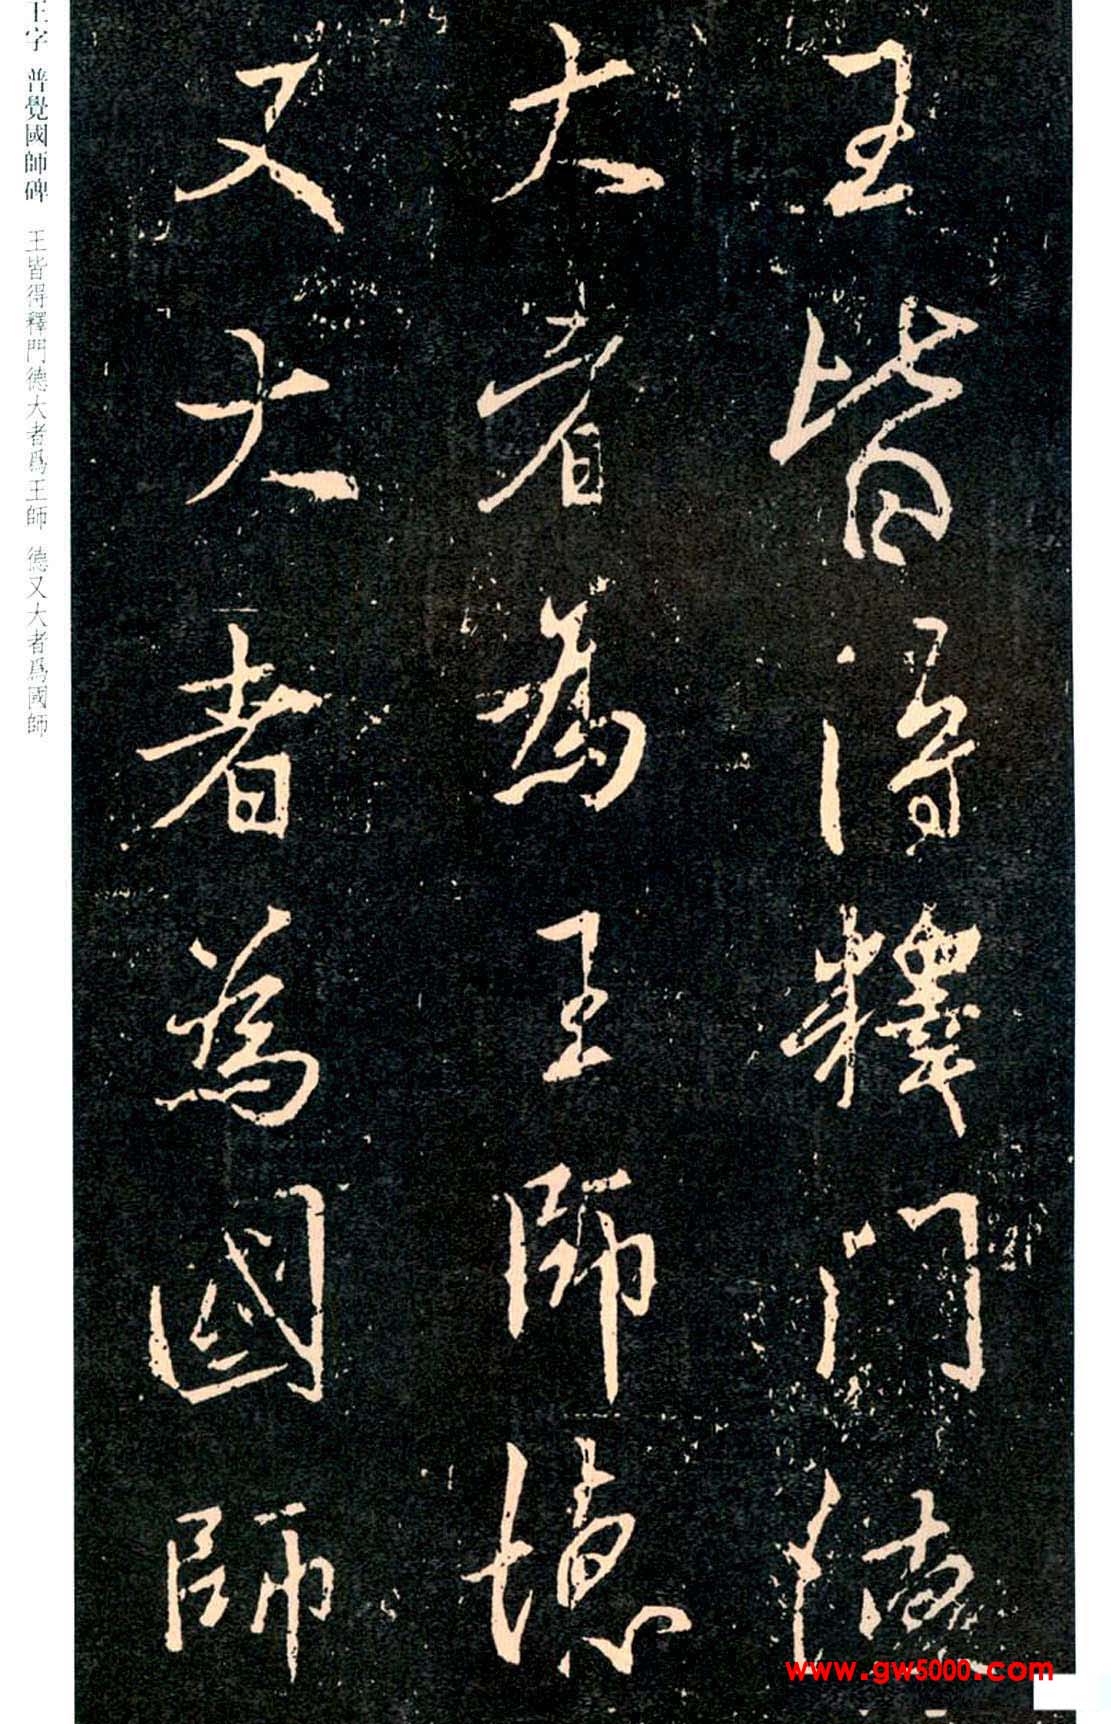 王皆得釋門德
大者為王師德
又大者為國師
王字 普覺國師碑 王皆得釋門德大者爲王師 德又大者爲國師
www.gw5000.com